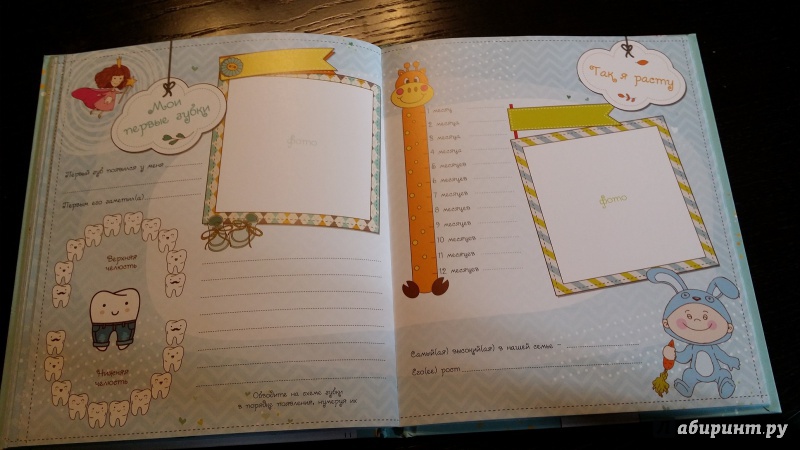 Мои
первые зубки
фото
Первый зуб появился у меня
Первым его заметил(а)
Верхняя
челюсть
Нижняя
челюсть
Обведите на схеме зубки
в порядке появления, нумеруя их
Так я расту
1 месяц
2 месяца
3 месяца
4 месяца
5 месяцев
6 месяцев
7 месяцев
8 месяцев
9 месяцев
10 месяцев
11 месяцев
12 месяцев
фото
Самый(ая) высокий(ая) в нашей семье –
Его(ее) рост
абиринт.ру